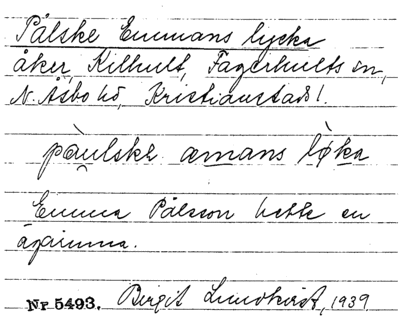 Pålske Emmans lycka
åker, Kilhult, Fagerhults sn,
N. Åsbo hd, Kristianstads l.
pàulska æmans lø̀ka
Emma Pålsson hette en
ägarinna.
Nr 5493. Birgit Lundkvist, 1939